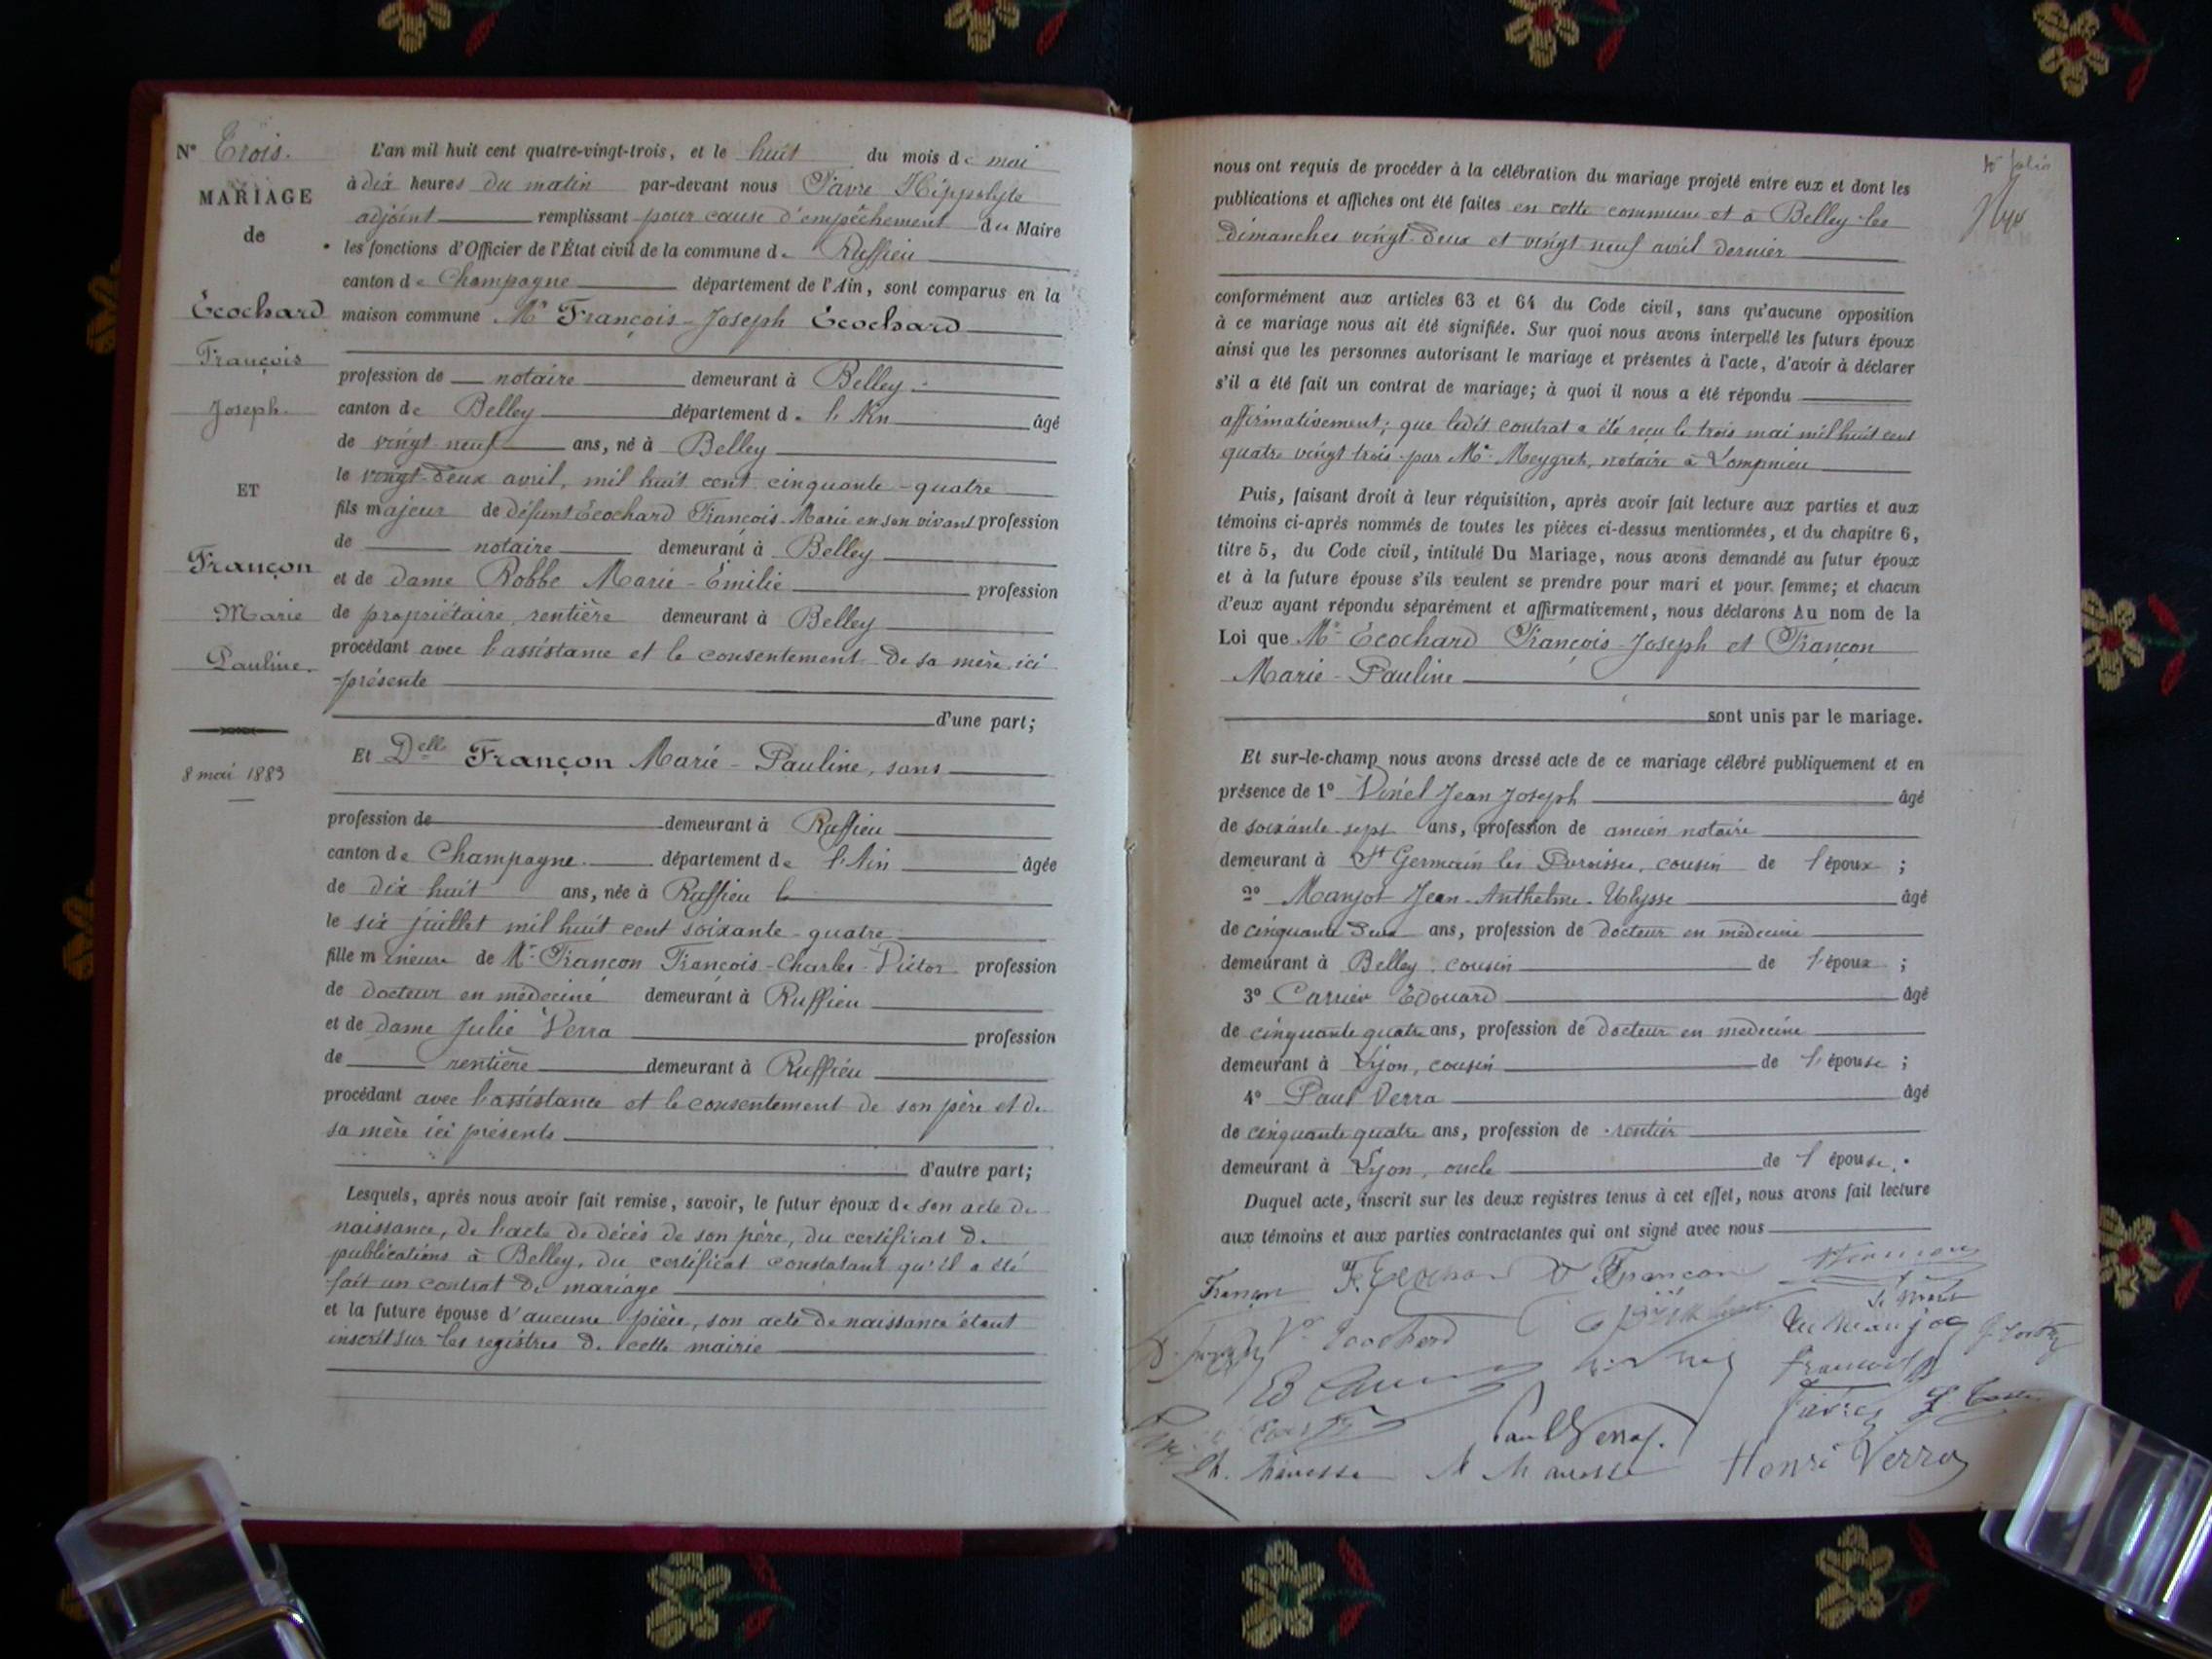 N° Trois.
MARIAGE
de
Écochard
François
Joseph.
ET
Françon
Marie
Pauline.
8 mai 1883
L'an mil huit cent quatre-vingt-trois, et le huit du mois de mai
à dix heures du matin par-devant nous Favre Hippolyte
adjoint remplissant pour cause d'empêchement du Maire
les fonctions d'Officier de l'État civil de la commune de Ruffieu
canton de Champagne département de l'Ain, sont comparus en la
maison commune Mr François-Joseph Écochard
profession de notaire demeurant à Belley
canton de Belley département de l'Ain âgé
de vingt neuf ans, né à Belley
le vingt-deux avril, mil huit cent cinquante-quatre
fils majeur de défunt Ecochard François-Marie en son vivant profession
de notaire demeurant à Belley
et de dame Robbe Marie-Émilie profession
de propriétaire, rentière demeurant à Belley
procédant avec l'assistance et le consentement de sa mère ici
présente
d'une part;
Et Delle Françon Marie-Pauline, sans
profession de demeurant à Ruffieu
canton de Champagne département de l'Ain âgée
de dix huit ans, née à Ruffieu le
le six juillet mil huit cent soixante-quatre
fille mineure de Mr Françon François-Charles-Victor profession
de docteur en médecine demeurant à Ruffieu
et de dame Julie Verra profession
de rentière demeurant à Ruffieu
procédant avec l'assistance et le consentement de son père et de
sa mère ici présents
d'autre part;
Lesquels, après nous avoir fait remise, savoir, le futur époux de son acte de
naissance, de l'acte de décès de son père, du certificat de
publications à Belley, du certificat constatant qu'il a été
fait un contrat de mariage
et la future épouse d'aucune pièce, son acte de naissance étant
inscrit sur les registres de cette mairie
nous ont requis de procéder à la célébration du mariage projeté entre eux et dont les
publications et affiches ont été faites en cette commune et à Belley les
dimanches vingt-deux et vingt neuf avril dernier
conformément aux articles 63 et 64 du Code civil, sans qu'aucune opposition
à ce mariage nous ait été signifiée. Sur quoi nous avons interpellé les futurs époux
ainsi que les personnes autorisant le mariage et présentes à l'acte, d'avoir à déclarer
s'il a été fait un contrat de mariage; à quoi il nous a été répondu
affirmativement; que ledit contrat a été reçu le trois mai mil huit cent
quatre vingt trois par Me Meygret, notaire à Lompnieu
Puis, faisant droit à leur réquisition, après avoir fait lecture aux parties et aux
témoins ci-après nommés de toutes les pièces ci-dessus mentionnées, et du chapitre 6,
titre 5, du Code civil, intitulé Du Mariage, nous avons demandé au futur époux
et à la future épouse s'ils veulent se prendre pour mari et pour femme; et chacun
d'eux ayant répondu séparément et affirmativement, nous déclarons Au nom de la
Loi que Mr Écochard François-Joseph et Françon
Marie-Pauline
sont unis par le mariage.
Et sur-le-champ nous avons dressé acte de ce mariage célébré publiquement et en
présence de 1° Vinel Jean Joseph âgé
de soixante-sept ans, profession de ancien notaire
demeurant à St Germain les Paroisses, cousin de l'époux ;
2° Manjot Jean-Anthelme-Ulysse âgé
de cinquante deux ans, profession de docteur en médecine
demeurant à Belley, cousin de l'époux ;
3° Carrier Édouard âgé
de cinquante quatre ans, profession de docteur en medecine
demeurant à Lyon, cousin de l'épouse ;
4° Paul Verra âgé
de cinquante quatre ans, profession de rentier
demeurant à Lyon, oncle de l'épouse.
Duquel acte, inscrit sur les deux registres tenus à cet effet, nous avons fait lecture
aux témoins et aux parties contractantes qui ont signé avec nous
Françon F. Ecochard Françon
Ve Ecochard
Paul Verra
Henri Verra